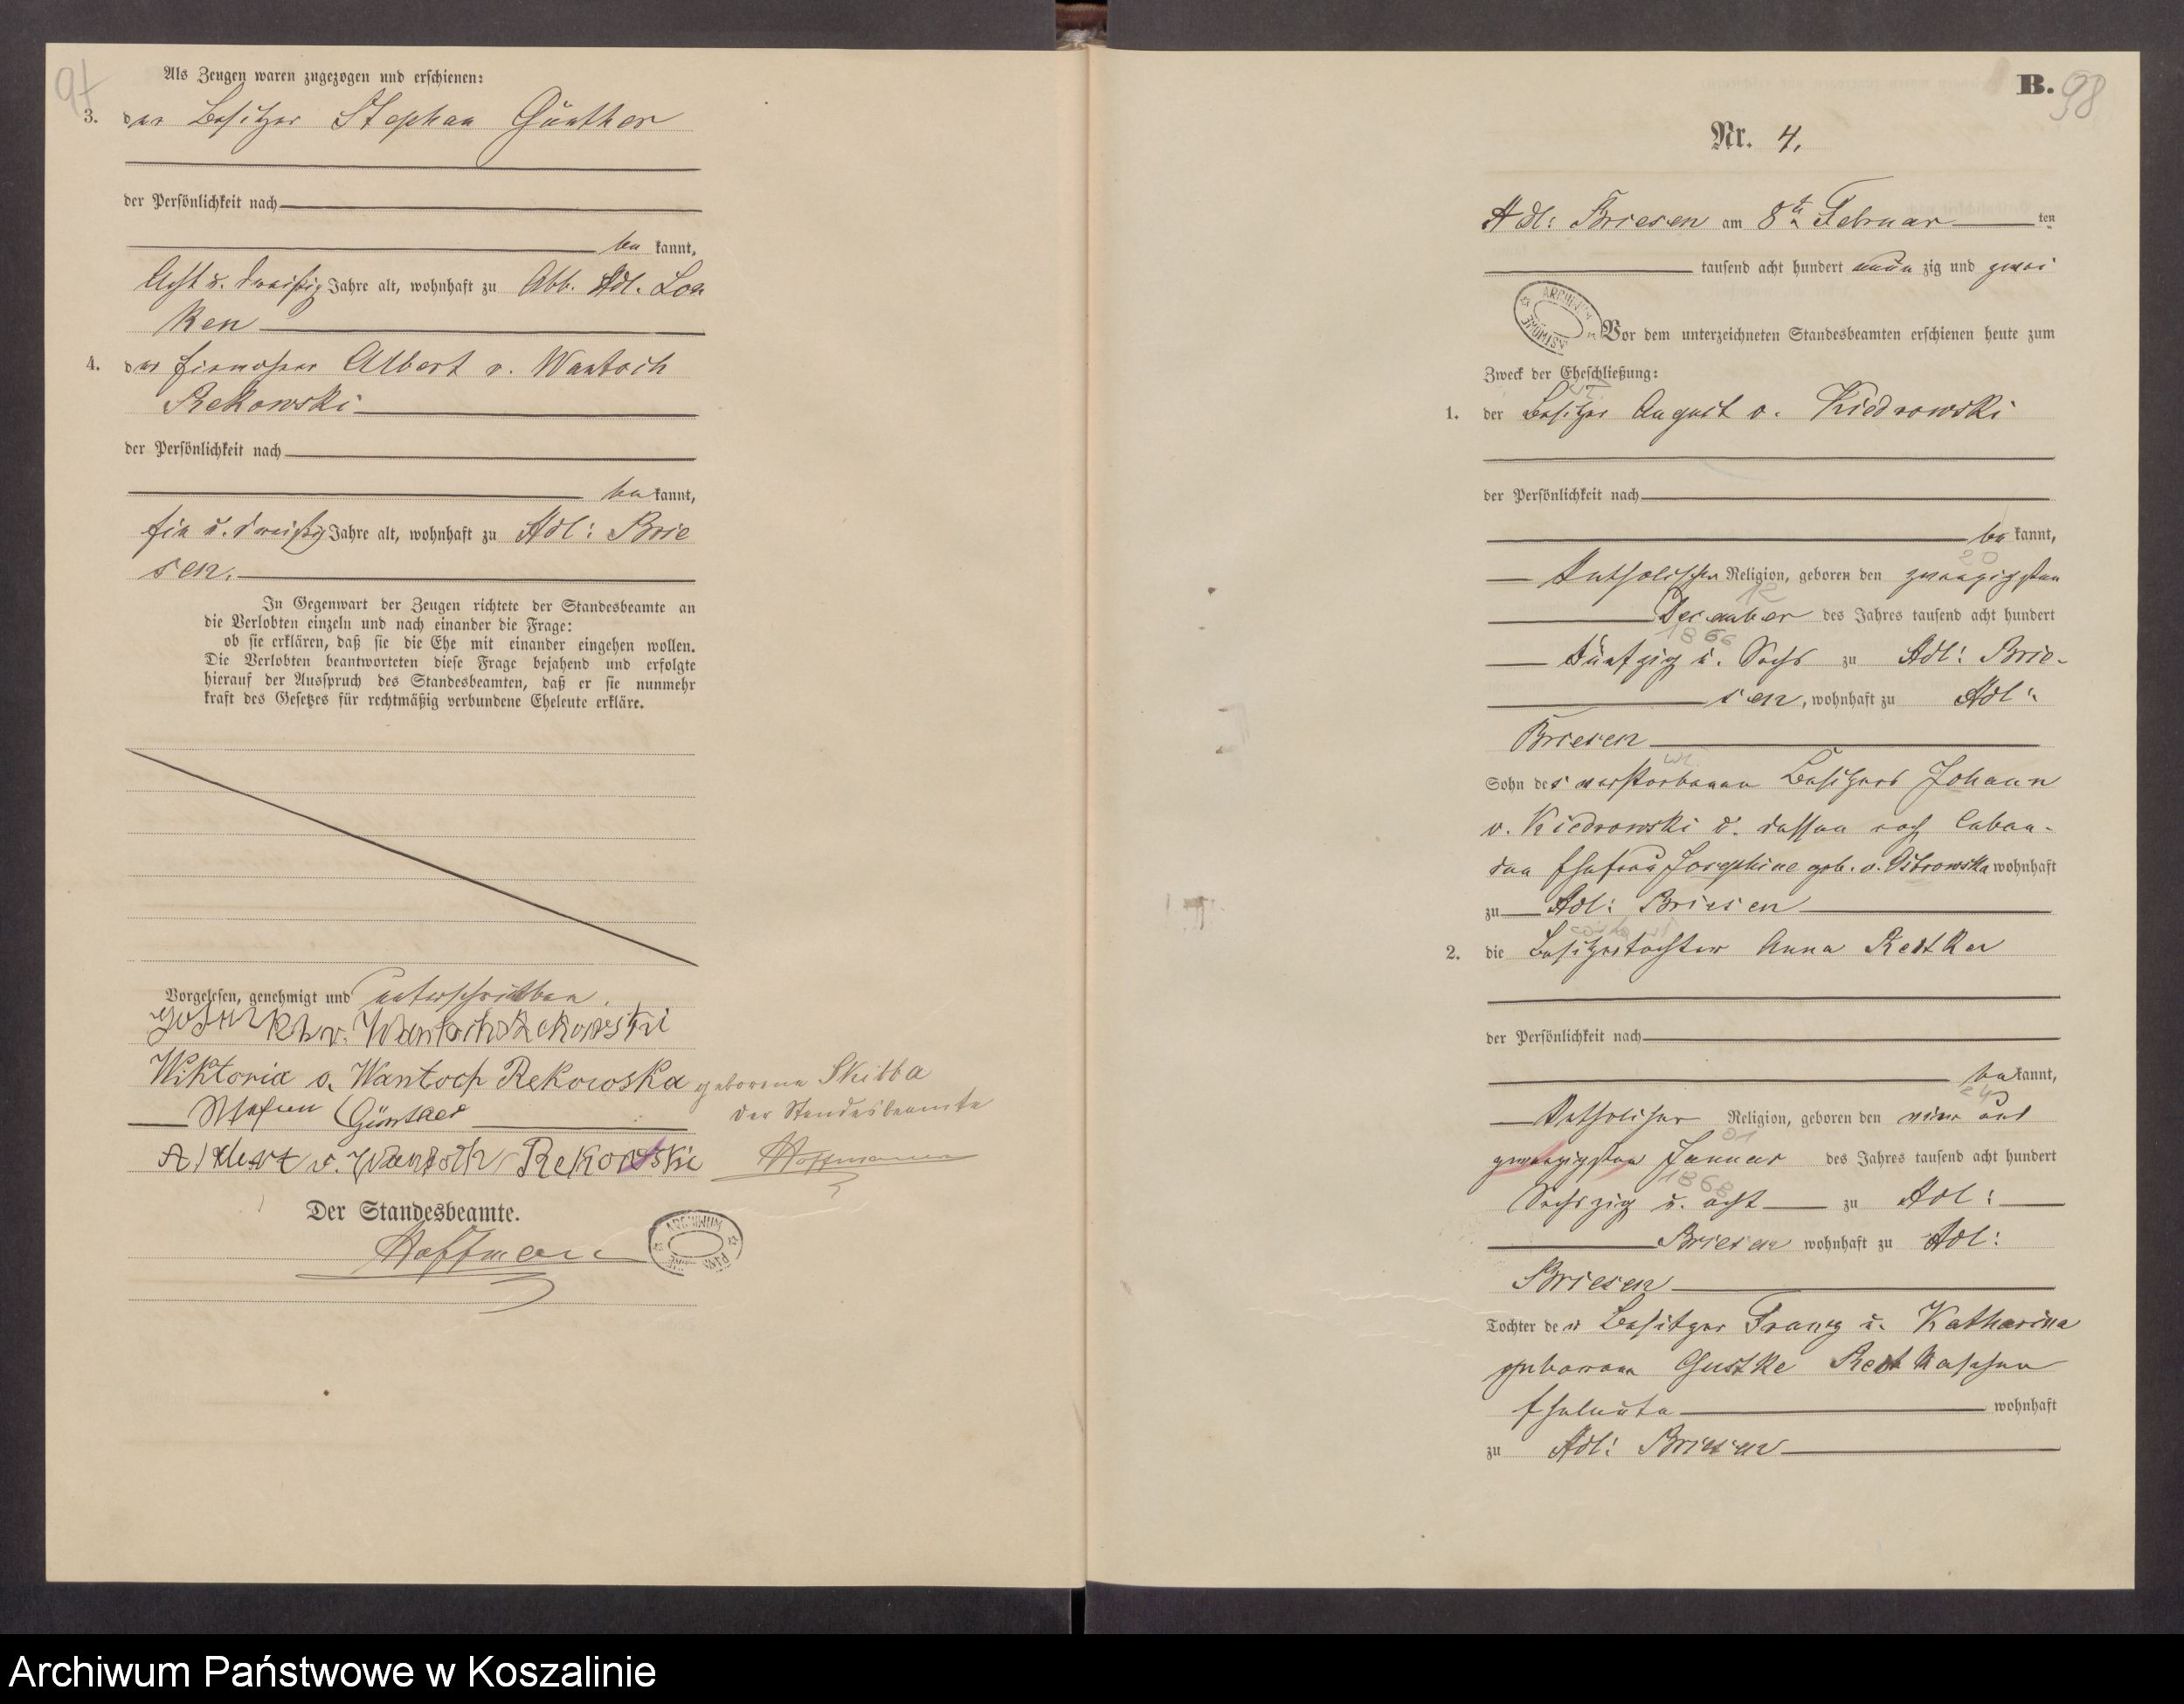 97
Als Zeugen waren zugezogen und erschienen:
3. der Besitzer Stephan Günther
der Persönlichkeit nach
be kannt,
Acht u. dreißig Jahre alt, wohnhaft zu Abb. Adl. Lon
ken
4. der Einwohner Albert v. Wantoch
Rekowski
der Persönlichkeit nach
be kannt,
Ein u. dreißig Jahre alt, wohnhaft zu Adl: Brie
sen.
In Gegenwart der Zeugen richtete der Standesbeamte an
die Verlobten einzeln und nach einander die Frage:
ob sie erklären, daß sie die Ehe mit einander eingehen wollen.
Die Verlobten beantworteten diese Frage bejahend und erfolgte
hierauf der Ausspruch des Standesbeamten, daß er sie nunmehr
kraft des Gesetzes für rechtmäßig verbundene Eheleute erkläre.
Vorgelesen, genehmigt und unterschrieben.
v. Wantoch Rekowski
Wiktoria v. Wantoch Rekowska geborene Skibba
Günther Der Standesbeamte
Albert v. Wantoch Rekowski Hoffmann
Der Standesbeamte.
Hoffmann
B. 98
Nr. 4.
Adl: Briesen am 8ten Februar ten
tausend acht hundert neun zig und zwei
Vor dem unterzeichneten Standesbeamten erschienen heute zum
Zweck der Eheschließung:
1. der Besitzer August v. Kiedrowski
der Persönlichkeit nach
be kannt,
20
Katholischer Religion, geboren den zwanzigsten
12
December des Jahres tausend acht hundert
1866
Fünfzig u. Sechs zu Adl: Brie-
sen, wohnhaft zu Adl:
Briesen
Sohn des verstorbenen Besitzers Johann
v. Kiedrowski u. dessen noch leben-
den Ehefrau Josephine geb. v. Ostrowska wohnhaft
zu Adl: Briesen
2. die Besitzertochter Anna Restker
der Persönlichkeit nach
be kannt,
24
Katholischer Religion, geboren den vier und
01
zwanzigsten Januar des Jahres tausend acht hundert
1868
Sechszig u. acht zu Adl:
Briesen wohnhaft zu Adl:
Briesen
Tochter der Besitzer Franz u. Katharina
geborene Gustke
Eheleute wohnhaft
zu Adl: Briesen
Archiwum Państwowe w Koszalinie